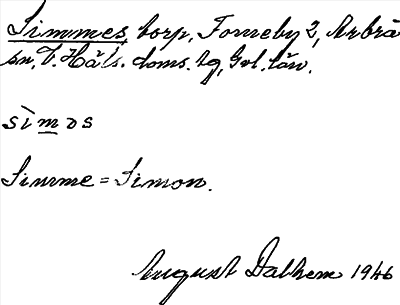 Simmes, torp, Forneby 2, Arbrå
sn, V. Häls. doms. tg, Gvl. län.
sìmøs
Simme = Simon.
August Dalhem 1946